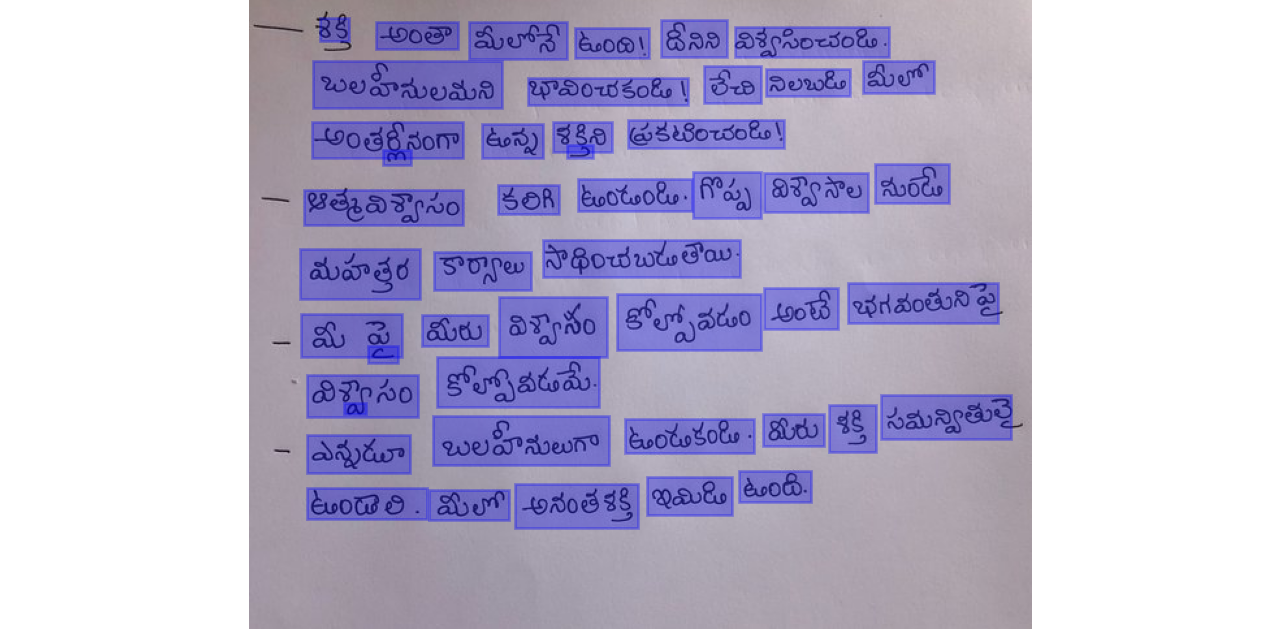 – శక్తి అంతా మీలోనే ఉంది! దీనిని విశ్వసించండి.
బలహీనులమని భావించకండి! లేచి నిలబడి మీలో
అంతర్లీనంగా ఉన్న శక్తిని ప్రకటించండి!
– ఆత్మవిశ్వాసం కలిగి ఉండండి. గొప్ప విశ్వాసాల నుండే
మహత్తర కార్యాలు సాధించబడుతాయి.
– మీ పై మీరు విశ్వాసం కోల్పోవడం అంటే భగవంతునిపై
విశ్వాసం కోల్పోవడమే.
– ఎన్నడూ బలహీనులుగా ఉండకండి. మీరు శక్తి సమన్వితులై
ఉండాలి. మీలో అనంతశక్తి ఇమిడి ఉంది.